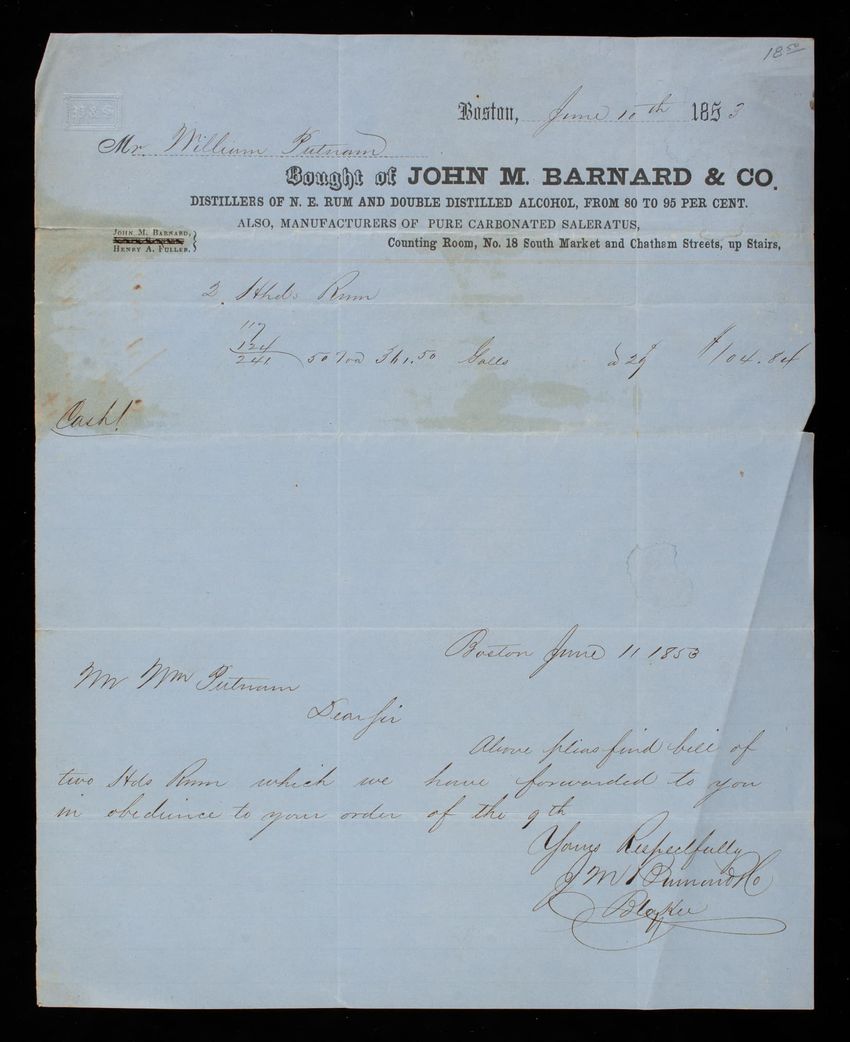 18.50
P & S
Boston, June 10th 1853
Mr. William Putnam
Bought of JOHN M. BARNARD & CO.
DISTILLERS OF N. E. RUM AND DOUBLE DISTILLED ALCOHOL, FROM 80 TO 95 PER CENT.
ALSO, MANUFACTURERS OF PURE CARBONATED SALERATUS,
JOHN M. BARNARD,
HENRY A. FULLER.
Counting Room, No. 18 South Market and Chatham Streets, up Stairs,
2 Hhds Rum
117
124
241 361.50 Galls a 29 $104.84
Cash!
Boston June 11 1853
Mr Wm Putnam
Dear Sir
Above pleas find bill of
two Hds Rum which we have forwarded to you
in obedience to your order of the 9th
Yours Respectfully
J M Barnard & Co